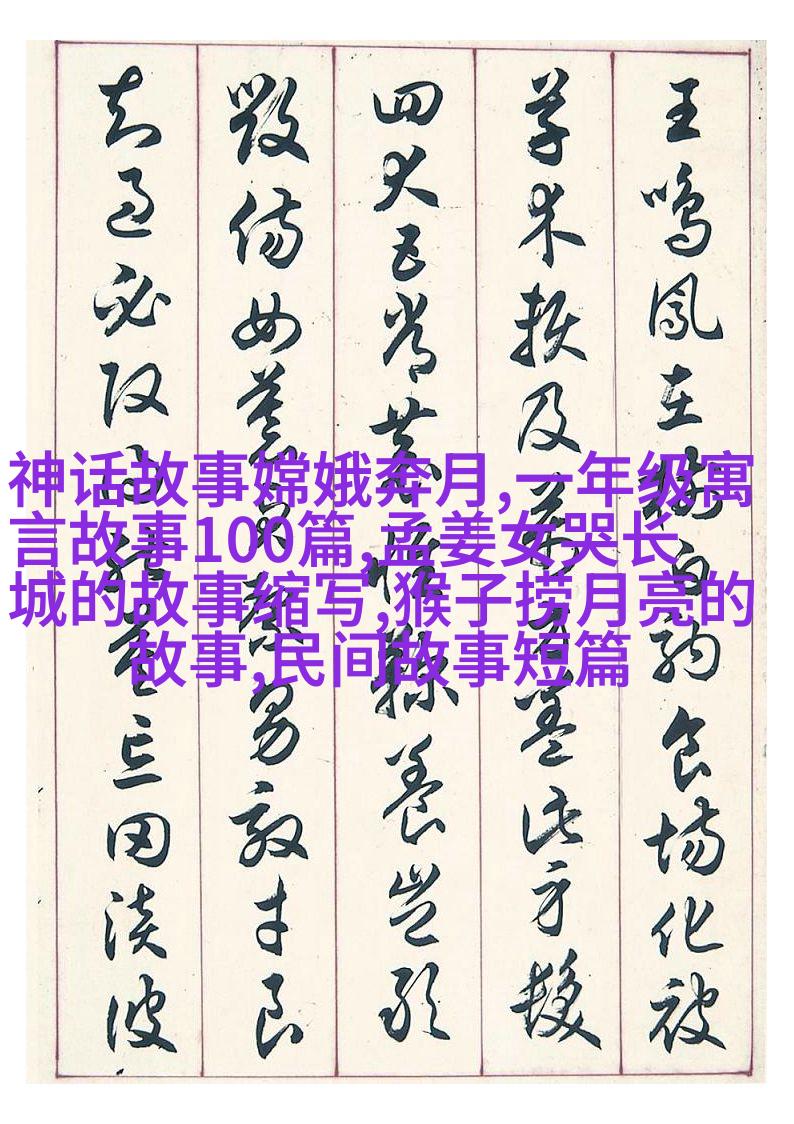 神话故事嫦娥奔月,一年级寓
言故事100篇,孟姜女哭长
城的故事缩写,猴子捞月亮的
故事,民间故事短篇
王鳴鳳在樹白駒食場化被
草木賴及萬方蓋此身髮
四大五常恭惟鞠養豈敢
毀傷女慕貞絜男效才良
知過必改得能莫忘罔談彼